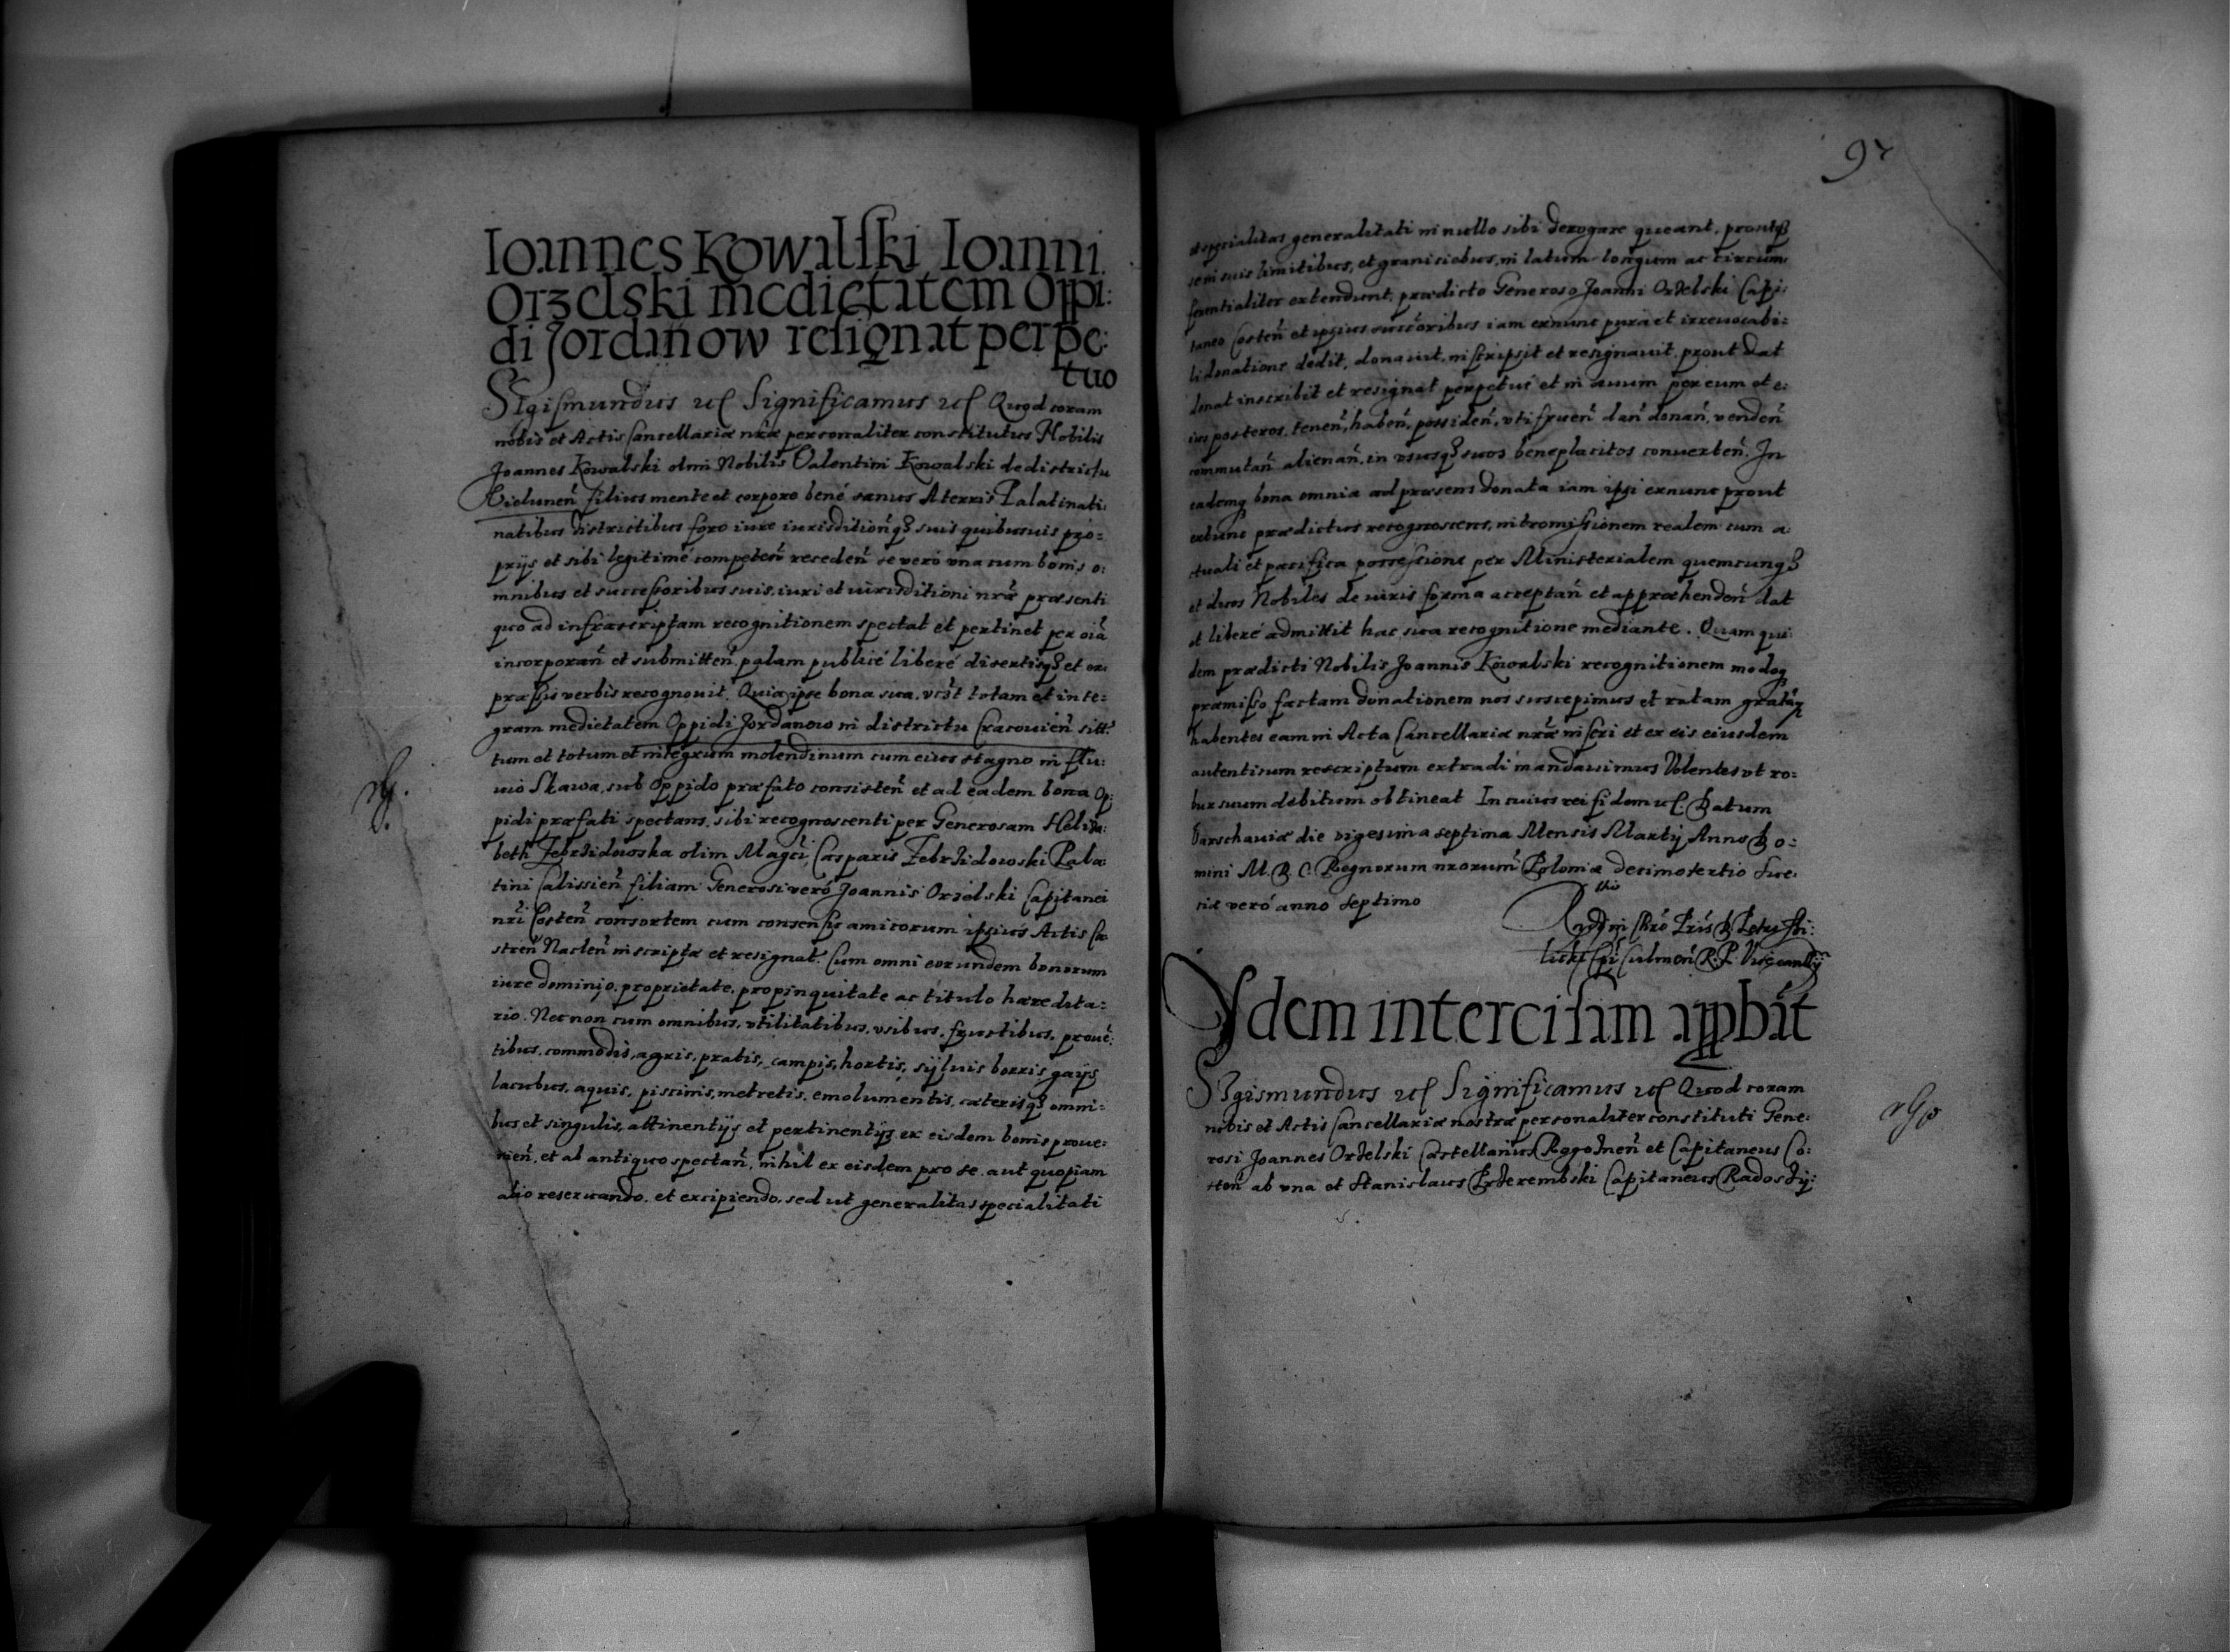 Ioannes Kowalski Ioanni
Orzelski medietatem Oppi:
di Jordanow resignat perpe:
tuo
Sigismundus etc Significamus etc Quod coram
nobis et Actis Cancellariæ nr̃æ personaliter constitutus Nobilis
Joannes Kowalski olim Nobilis Valentini Kowalski de districtu
Vielunen̄ filius mente et corpore bené sanus A terris Palatinati:
natibus districtibus foro iure iurisditioneq3 suis quibusuis pro=
prijs et sibi legitimé competen̄ receden̄ se veró vna cum bonis o:
mnibus et successoribus suis, iuri et iurisditioni nr̃æ præsenti
quo ad infrascriptam recognitionem spectat et pertinet per oīa
incorporan̄ et submitten̄ palam publicé liberé disertisq3 et ex:
præssis verbis recognouit. Quia ipse bona sua, vczt totam et inte=
gram medietatem Oppidi Jordanow in districtu Cracouien̄ sitt:
tum et totum et integrum molendinum cum eius stagno in flu:
uio Skawa, sub Oppido præfato consisten̄ et ad eadem bona Op:
pidi præfati spectans, sibi recognoscenti per Generosam Heliza:
beth Zebrzidowska olim Magci Casparis Zebrzidowski Pala:
tini Calissien̄ filiam Generosi veró Joannis Orzelski Capitanei
nr̃i Costen̄ consortem cum consensu amicorum ipsius Actis Ca:
stren̄ Naclen̄ inscripta et resignat. Cum omni eorundem bonorum
iure dominio, proprietate, propinquitate ac titulo hæredita=
rio. Nec non cum omnibus, vtilitatibus, vsibus, fructibus, prouē:
tibus, commodis, agris, pratis, campis, hortis, syluis borris gaijs
lacubus, aquis, piscinis, metretis, emolumentis, cæterisq3 omni=
bus et singulis, attinentijs et pertinentijs ex eisdem bonis proue:
nien̄, et ab antiquo spectan̄, nihil ex eisdem pro se aut quopiam
alio reseruando, et excipiendo, sed ut generalitas specialitati
97
et specialitas generalitati in nullo sibi derogare queant, proutq3
se in suis limitibus, et graniciebus, in latum longum ac circum
ferentialiter extendunt, prædicto Generoso Joanni Orzelski Capi:
taneo Costen̄ et ipsius succ̄oribus iam exnunc pura et irreuocabi=
li donatione dedit, donauit, inscripsit et resignauit, prout dat
donat inscribit et resignat perpetué et in æuum per eum et e:
ius posteros, tenen̄, haben̄, possiden̄, vtifruen̄ dan̄ donan̄, venden̄
commutan̄ alienan̄, in vsusq3 suos beneplacitos conuerten̄. In
eademq bona omnia ad præsens donata iam ipsi exnunc prout
extunc prædictus recognoscens, intromissionem realem cum a:
ctuali et pacifica possessione per Ministerialem quemcunq3
et duos Nobiles de iuris forma acceptan̄ et appræhenden̄ dat
et liberé admittit hac sua recognitione mediante. Quam qui:
dem prædicti Nobilis Joannis Kowalski recognitionem modoq
præmisso factam donationem nos suscepimus et ratam gratāq
habentes eam in Acta Cancellariæ nr̃æ inscri et ex eis eiusdem
autenticum rescriptum extradi mandauimus Volentes vt ro:
bur suum debitum obtineat In cuius rei fidem etc. Datum
Varschauiæ die vigesima septima Mensis Martij Anno Do=
mini M. D. C. Regnorum nrorum Poloniæ decimotertio Sue:
tiæ veró anno septimo
Rndmi Chro Pris D. Petri Ti:
licki Epi Culmen̄ R. P. Vicecanllrij
Ydem intercisam appbāt
Sigismundus etc Significamus etc Quod coram
nobis et Actis Cancellariæ nostræ personaliter constituti Gene:
rosi Joannes Orzelski Castellanus Rogoznen̄ et Capitaneus Co:
sten̄ ab vna et Stanislaus Przerembski Capitaneus Radoszy: